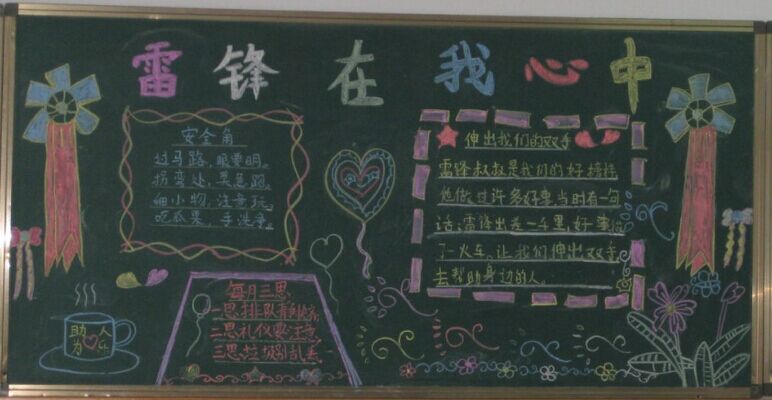 雷锋在我心中
安全角
过马路,眼要明。
拐弯处,莫急跑。
细小物,注意玩。
吃瓜果,手洗净。
伸出我们的双手
雷锋叔叔是我们的好榜样
他做过许多好事,当时有一句
话:雷锋出差一千里,好事做
了一火车。让我们伸出双手
去帮助身边的人。
每月三思
一思排队有秩序
二思礼仪要注意
三思垃圾别乱丢
助人
为乐